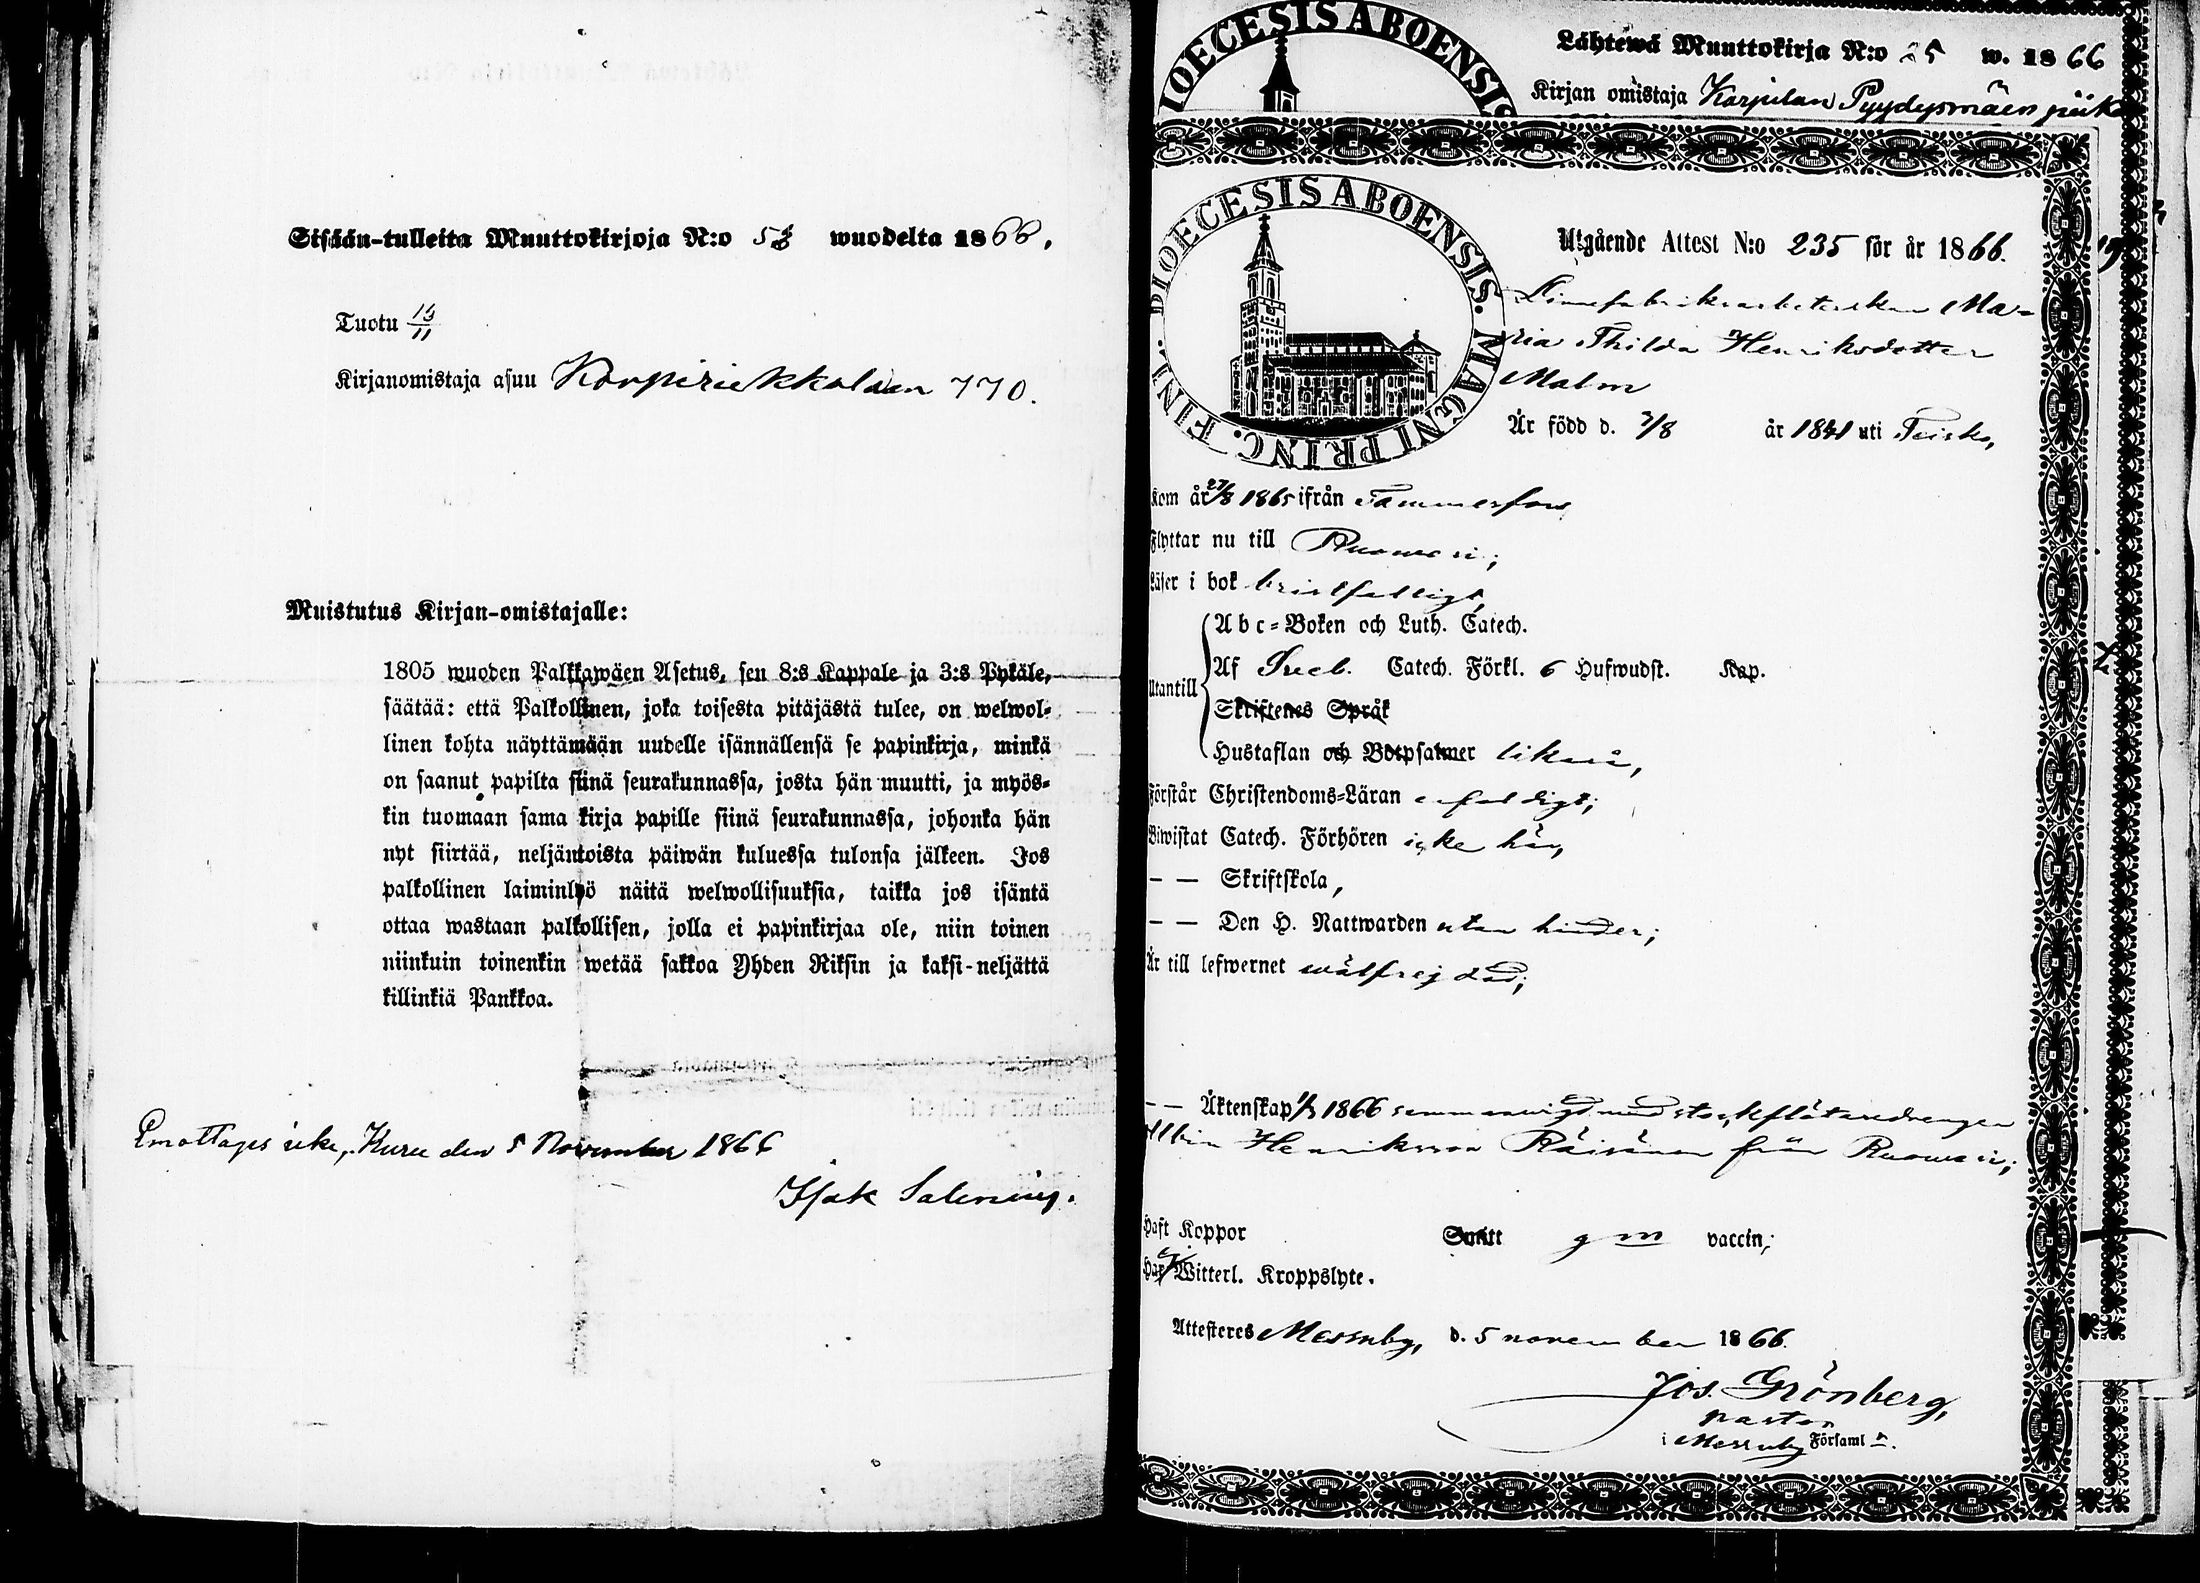 Sisään-tulleita Muuttokirjoja N:o 58 wuodelta 1866.
Tuotu 13/11
Kirjanomistaja asuu 770.
Muistutus Kirjan-omistajalle:
1805 wuoden Palkkawäen Asetus, sen 8:s Kappale ja 3:s Pykäle,
säätää: että Palkollinen, joka toisesta pitäjästä tulee, on welwol-
linen kohta näyttämään uudelle isännällensä se papinkirja, minkä
on saanut papilta siinä seurakunnassa, josta hän muutti, ja myös-
kin tuomaan sama kirja papille siinä seurakunnassa, johonka hän
nyt siirtää, neljäntoista päiwän kuluessa tulonsa jälkeen. Jos
palkollinen laiminlyö näitä welwollisuuksia, taikka jos isäntä
ottaa wastaan palkollisen, jolla ei papinkirjaa ole, niin toinen
niinkuin toinenkin wetää sakkoa Yhden Riksin ja kaksi-neljättä
killinkiä Pankkoa.
Emottages icke, Kuru den 5 November 1866
Isak Salenius.
DIOECESIS ABOENSIS
Lähtewä Muuttokirja N:o 25 w. 1866
Kirjan omistaja Karjulan Pyydysmäen piika
DIOECESIS ABOENSIS. MAGNI PRINC. FINL.
Utgående Attest N:o 235 för år 1866.
Linnefabriksarbeterskan Ma-
ria Thilda Henriksdotter
Malm
Är född d. 7/8 år 1841 uti Teisko,
Kom år 27/8 1865 ifrån Tammerfors
Flyttar nu till Ruowesi;
Läser i bok bristfälligt,
Utantill
Abc-Boken och Luth. Catech.
Af Sveb. Catech. Förkl. 6 Hufwudst. Kap.
Skriftenes Språk
Hustaflan och Botpsalmer likaså,
Förstår Christendoms-Läran enfaldigt;
Biwistat Catech. Förhören icke här,
— — Skriftskola,
— — Den H. Nattwarden utan hinder;
Är till lefwernet wälfrejdad;
— — Äktenskap 1/7 1866 sammanwigd med stockflötaredrengen
Albin Henriksson Räisänen från Ruowesi;
Haft Koppor Smitt g m vaccin;
Har ej Witterl. Kroppslyte.
Attesteres Messuby, d. 5 november 1866.
Jos. Grönberg,
pastor
i Messuby Församl n.